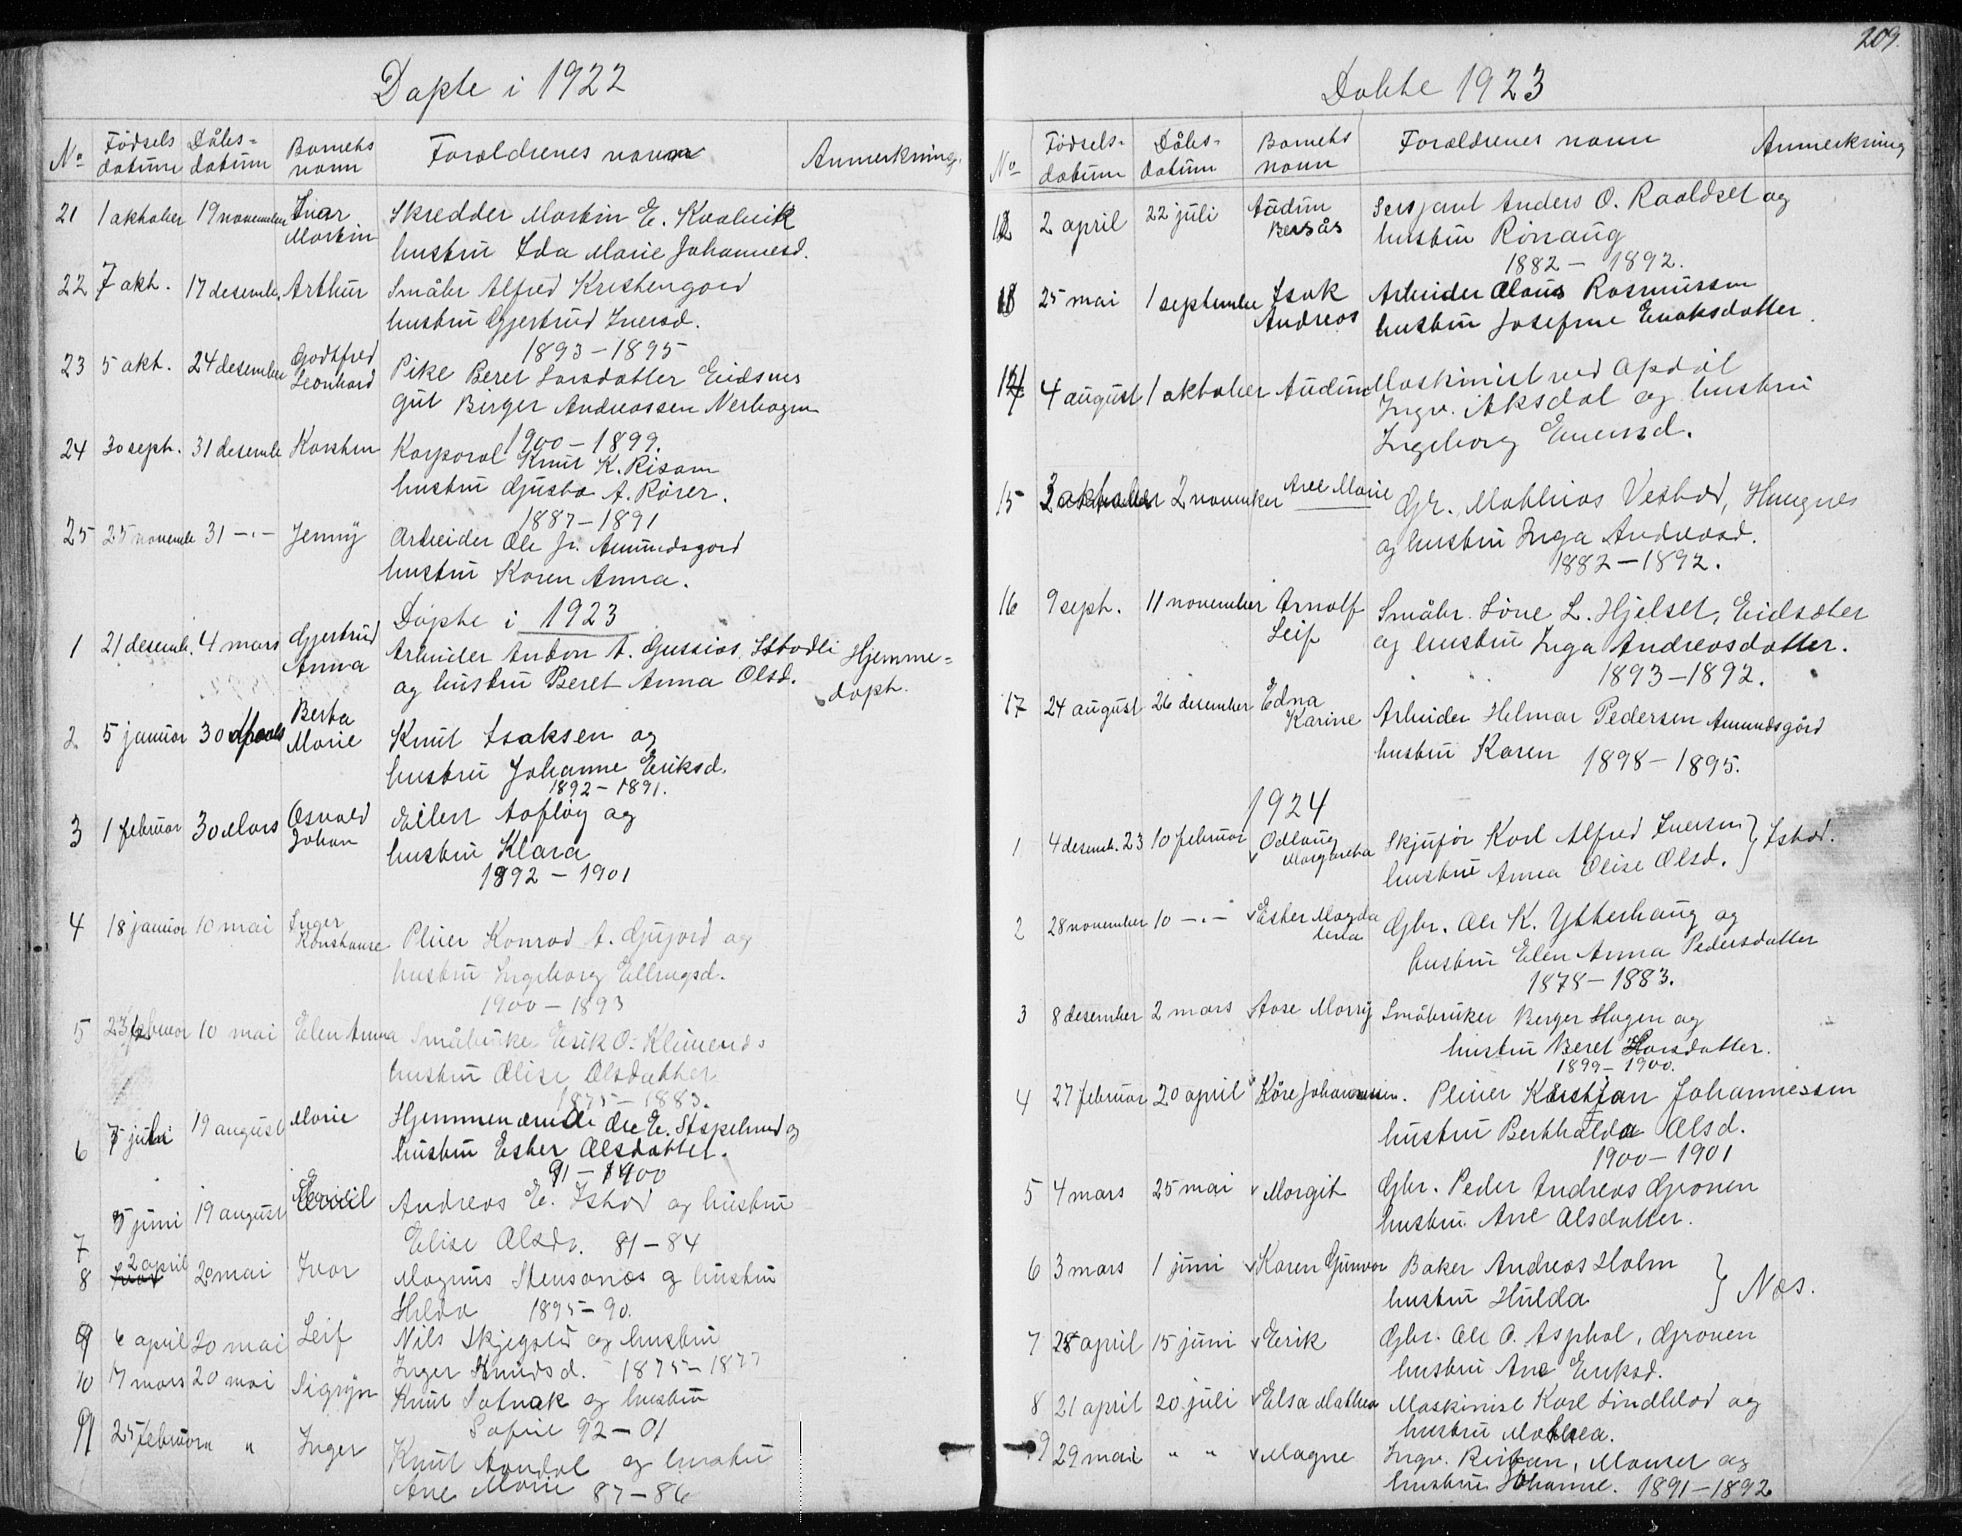 Døpte i 1922
No Fødsels datum Dåbs- datum Barnets navn Forældrenes navn Anmerkning.
21 1 oktober 19 november Ivar Martin Skredder Martin E.
hustru Ida Marie Johannesd.
22 7 okt. 17 desembr. Arthur Småbr Alfred
hustru Gjertrud Iversd.
1893 - 1895
23 5 okt. 24 desember Godtfred Leonhard Pike Beret Larsdatter Eidsnes
gut Birger Andreassen Nerhagen
1900 - 1899.
24 30 sept. 31 desembr Karsten Korporal Knut K. Risam
hustru Gjusta A. Rörer.
1887 - 1891
25 25 novembr 31 -"- Jenny Arbeider Ole Jr. Amundsgard
hustru Karen Anna.
Døpte i 1923
1 21 desemb. 4 mars Gjertrud Anna Arbeider Anton A. Gussiås. Istadli Hjemme=
og hustru Beret Anna Olsd. døpt.
2 5 januar 30 Berta Marie Knut Isaksen og
hustru Johanne Eriksd.
1892 - 1891.
3 1 februar 30 Mars Osvald Johan Eilert Aafløy og
hustru Klara
1892 - 1901
4 18 januar 10 mai Inger Konstanse Pleier Konrad A. Gujord og
hustru Ingeborg Ellingsd.
1900 - 1893
5 23 februar 10 mai Elen Anna Småbruke Erik O.
hustru Elise Olsdatter
1875 - 1883.
6 7 juli 19 august Marie Hjemmenærende Ole E. og
hustru Ester Olsdatter.
91 - 1900
7 5 juni 19 august Andreas E. Istad og hustru
Elise Olsdr. 81 - 84
8 2 april 20 mai Ivar Magnus Stensønes og hustru
Hilda 1895 - 90.
9 6 april 20 mai Leif Nils Skjegstad og hustru
Inger Knudsd. 1875 - 1877
10 17 mars 20 mai Sigryn Knut Sotnak og hustru
Sofie 92 - 01
11 25 februar " " Inger Knut Aandal og hustru
Ane Marie 87 - 86
209.
Døbte 1923
No Fødsels- datum Dåbs- datum Barnets navn Forældrenes navn Anmerkning
12 2 april 22 juli Audun Bersås Sersjant Anders O. Raaldset og
hustru Rönaug
1882 - 1892.
13 25 mai 1 september Isak Andreas Arbeider Olaus Rasmussen
hustru Josefine Enoksdatter.
14 4 august 1 oktober Audun Maskinist ved Opdöl
Ingv. Aksdal og hustru
Ingeborg Einersd.
15 3 oktober 2 november Ane Marie Gbr. Mathias Vestad, Haugnes
og hustru Inga Andreasd.
1882 - 1892.
16 9 sept. 11 november Arnolf Leif Småbr. Söne L. Hjelset, Eidsæter
og hustru Inga Andreasdatter.
1893 - 1892.
17 24 august 26 desember Edna Karine Arbeider Helmar Pedersen Amundsgård
hustru Karen 1898 - 1895.
1924
1 4 desemb. 23 10 februar Odlaug Margareta Skjufør Karl Alfred Iversen } Istad.
hustru Anna Elise Olsd.
2 28 november 10 -"- Ester Magda Gbr. Ole K. Ytterhaug og
hustru Elen Anna Pedersdatter
1878 - 1883.
3 8 desember 2 mars Aase Marry Småbruker Berger Hagen og
hustru Beret Larsdatter.
1899 - 1900.
4 27 februar 20 april Kåre Johannessen. Pleier Kristian Johannessen
hustru Berthalda Olsd.
1900 - 1901
5 4 mars 25 mai Margit Gbr. Peder Andreas Grönen
hustru Ane Olsdatter.
6 3 mars 1 juni Karen Gunvor Baker Andreas Holm } Næs.
hustru Hulda
7 28 april 15 juni Eirik Gbr. Ole O. Asphol, Grönen
hustru Ane Eriksd.
8 21 april 20 juli Elsa Mathea Maskinist Karl Lindblad og
hustru Mathea.
9 29 mai " " Magne Ingv. Reitan, Manset og
hustru Johanne. 1891 - 1892